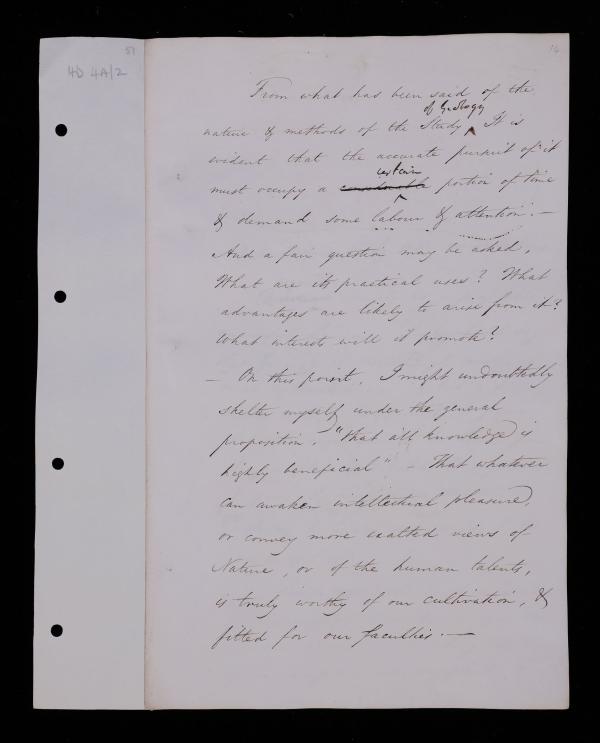 51
4D 4A/2
14
From what has been said of the
of Geology
nature & methods of the Study ‸ It is
evident that the accurate pursuit of it
certain
must occupy a considerable portion of time
& demand some labour & attention. —
And a fair question may be asked,
What are its practical uses? What
advantages are likely to arise from it?
What interests will it promote?
— On this point, I might undoubtedly
shelter myself under the general
proposition, "that all knowledge is
highly beneficial" – That whatever
can awaken intellectual pleasure,
or convey more exalted views of
Nature, or of the human talents,
is truly worthy of our cultivation, &
fitted for our faculties. —